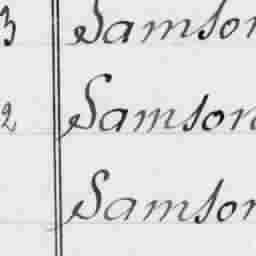 3 Samson
2 Samson
Samson